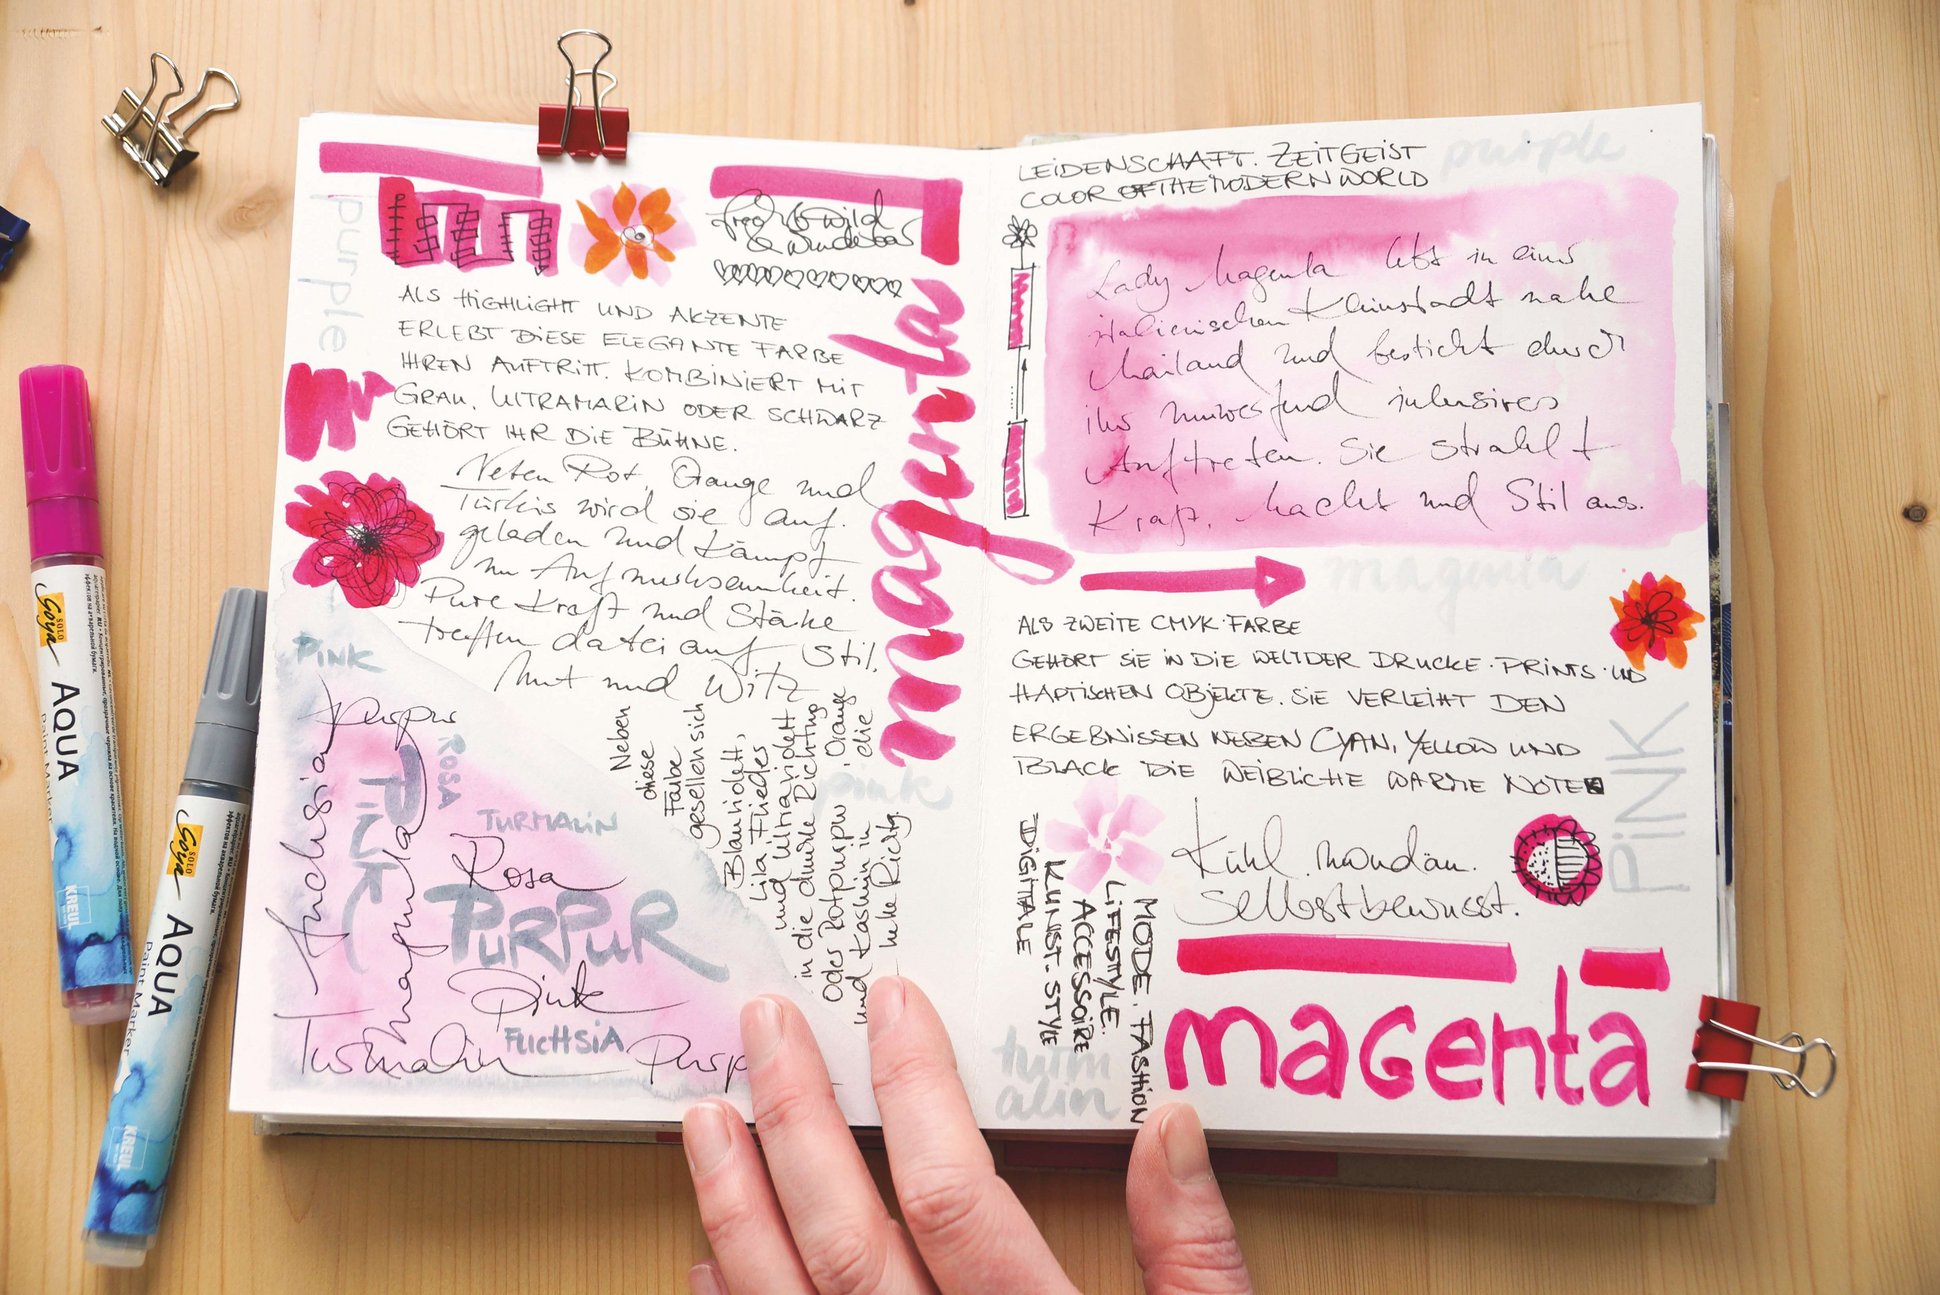 purple
frech & wild
& wunderbar
ALS HIGHLIGHT UND AKZENTE
ERLEBT DIESE ELEGANTE FARBE
IHREN AUFTRITT. KOMBINIERT MIT
GRAU, ULTRAMARIN ODER SCHWARZ
GEHÖRT IHR DIE BÜHNE.
Neben Rot, Orange und
Türkis wird sie auf.
geladen und kämpft
um Aufmerksamkeit.
Pure Kraft und Stärke
treffen dabei auf Stil,
Mut und Witz
magenta
PINK
purpur
Fuchsia
PINK
ROSA
magenta
TURMALIN
Rosa
PURPUR
Pink
FUCHSIA
Turmalin
Purp
Neben
diese
Farbe
gesellen sich
Blauviolett,
Lila Flieder
und Ultraviolett
in die dunkle Richtung
oder Rotpurpur, Orange
und Kashmin in die
helle Richtg.
pink
LEIDENSCHAFT. ZEITGEIST
COLOR OF THE MODERN WORLD
purple
Lady Magenta lebt in einer
italienischen Kleinstadt nahe
Mailand und besticht durch
ihr umwerfend intensives
Auftreten. Sie strahlt
Kraft, Macht und Stil aus.
magenta
ALS ZWEITE CMYK·FARBE
GEHÖRT SIE IN DIE WELT DER DRUCKE·PRINTS·UND
HAPTISCHEN OBJEKTE. SIE VERLEIHT DEN
ERGEBNISSEN NEBEN CYAN, YELLOW UND
BLACK DIE WEIBLICHE WARME NOTE
PINK
Kühl. mondän.
Selbstbewusst.
MODE. FASHION
LIFESTYLE.
ACCESSOIRE
KUNST. STYLE
DIGITALE
turm
alin
magenta
SOLO
Goya
AQUA
Paint Marker
KREUL
SOLO
Goya
AQUA
Paint Marker
KREUL